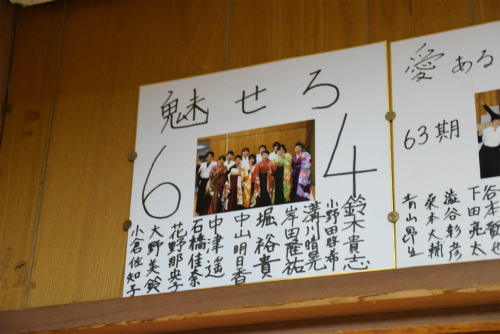 魅せろ
64
鈴木貴志
小野田啓希
溝川晴晃
岸田隆祐
堀裕貴
中山明日香
中津遥
石橋佳奈
花野那央子
大野美鈴
小倉佐知子
愛ある
63期
下田亮太
澁谷彰彦
桑本大輔
青山昂生